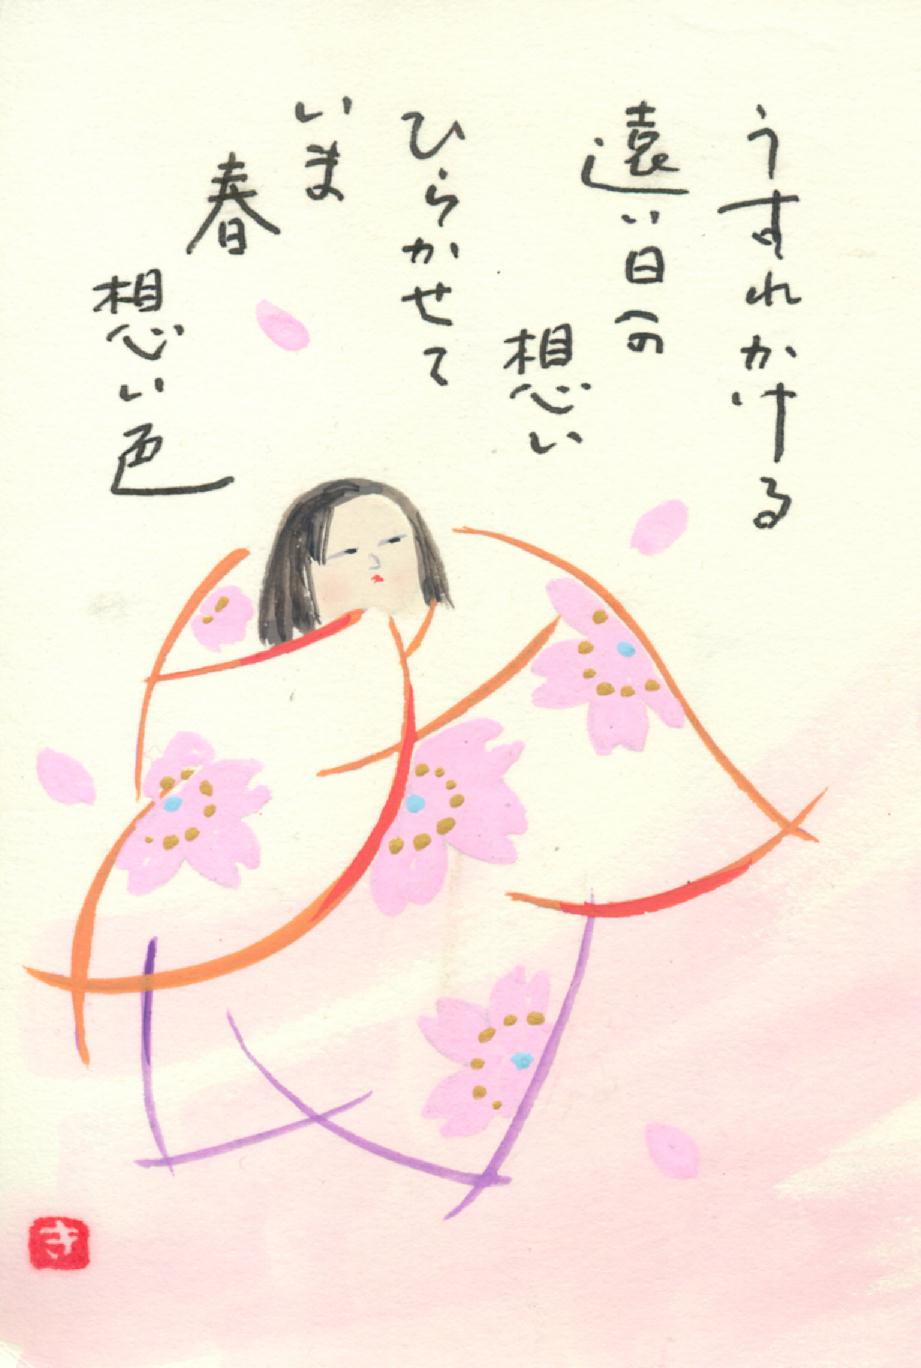 うすれかける
遠い日への
想い
ひらかせて
いま
春
想い色
き